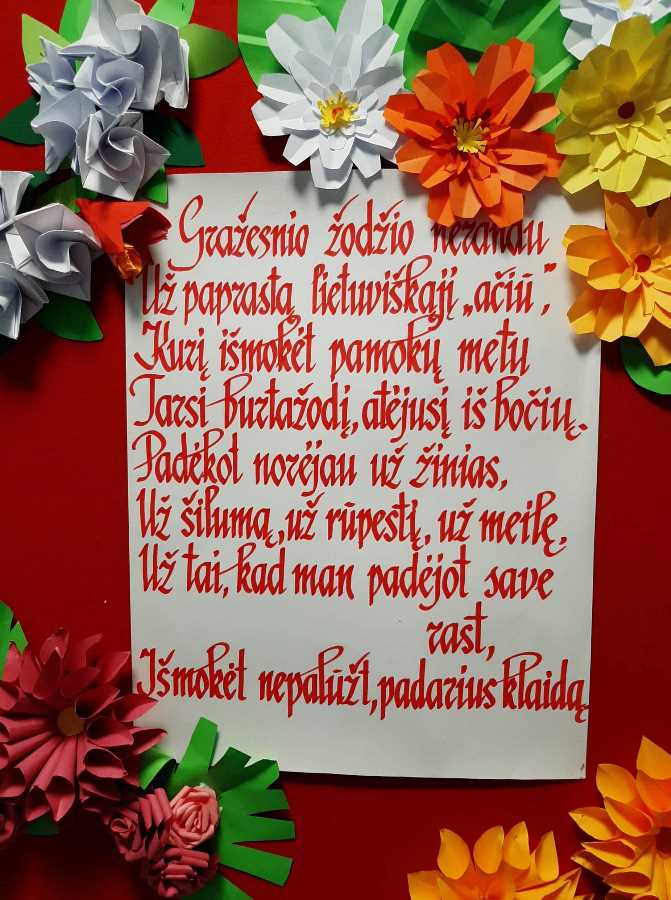 Gražesnio žodžio nerandu
Už paprastą lietuviškąjį „ačiū“,
Kurį išmokėt pamokų metu
Tarsi burtažodį, atėjusį iš bočių.
Padėkot norėjau už žinias,
Už šilumą, už rūpestį, už meilę,
Už tai, kad man padėjot save
rast,
Išmokėt nepalūžt, padarius klaidą